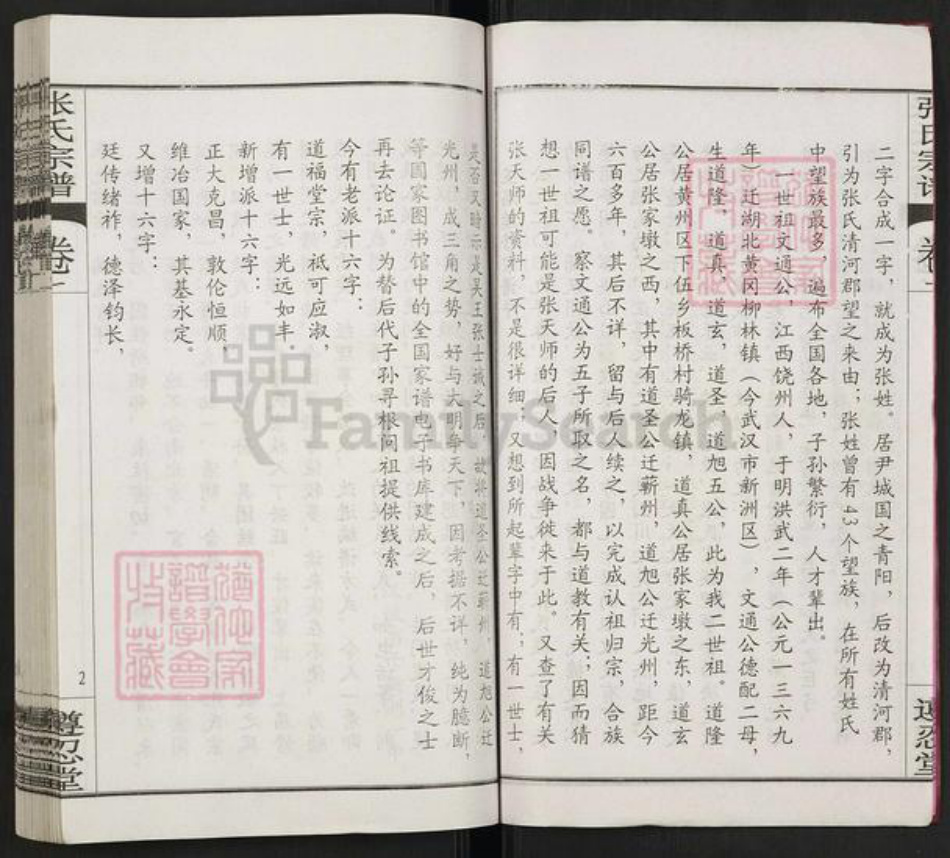 张氏宗谱
卷一
遵忍堂
二字合成一字，就成为张姓。居尹城国之青阳，后改为清河郡，
引为张氏清河郡望之来由；张姓曾有43个望族，在所有姓氏
中望族最多，遍布全国各地，子孙繁衍，人才辈出。
一世祖文通公，江西饶州人，于明洪武二年（公元一三六九
年）迁湖北黄冈柳林镇（今武汉市新洲区），文通公德配二母，
生道隆、道真、道玄、道圣、道旭五公，此为我二世祖。道隆
公居黄州区下伍乡板桥村骑龙镇，道真公居张家墩之东，道玄
公居张家墩之西，其中有道圣公迁蕲州，道旭公迁光州，距今
六百多年，其后不详，留与后人续之，以完成认祖归宗，合族
同谱之愿。察文通公为五子所取之名，都与道教有关；因而猜
想一世祖可能是张天师的后人，因战争徙来于此。又查了有关
张天师的资料，不是很详细；又想到所起辈字中有，有一世士，
是否又暗示是吴王张士诚之后，故将道圣公迁蕲州，道旭公迁
光州，成三角之势，好与大明争天下，因考据不详，纯为臆断，
等国家图书馆中的全国家谱电子书库建成之后，后世才俊之士
再去论证。为替后代子孙寻根问祖提供线索。
今有老派十六字：
道福堂宗，祇可应淑，
有一世士，光远如丰。
新增派十六字：
正大克昌，敦伦恒顺，
维冶国家，其基永定。
又增十六字：
廷传绪祚，德泽钧长，
张氏宗谱
卷一
2
遵忍堂
FamilySearch